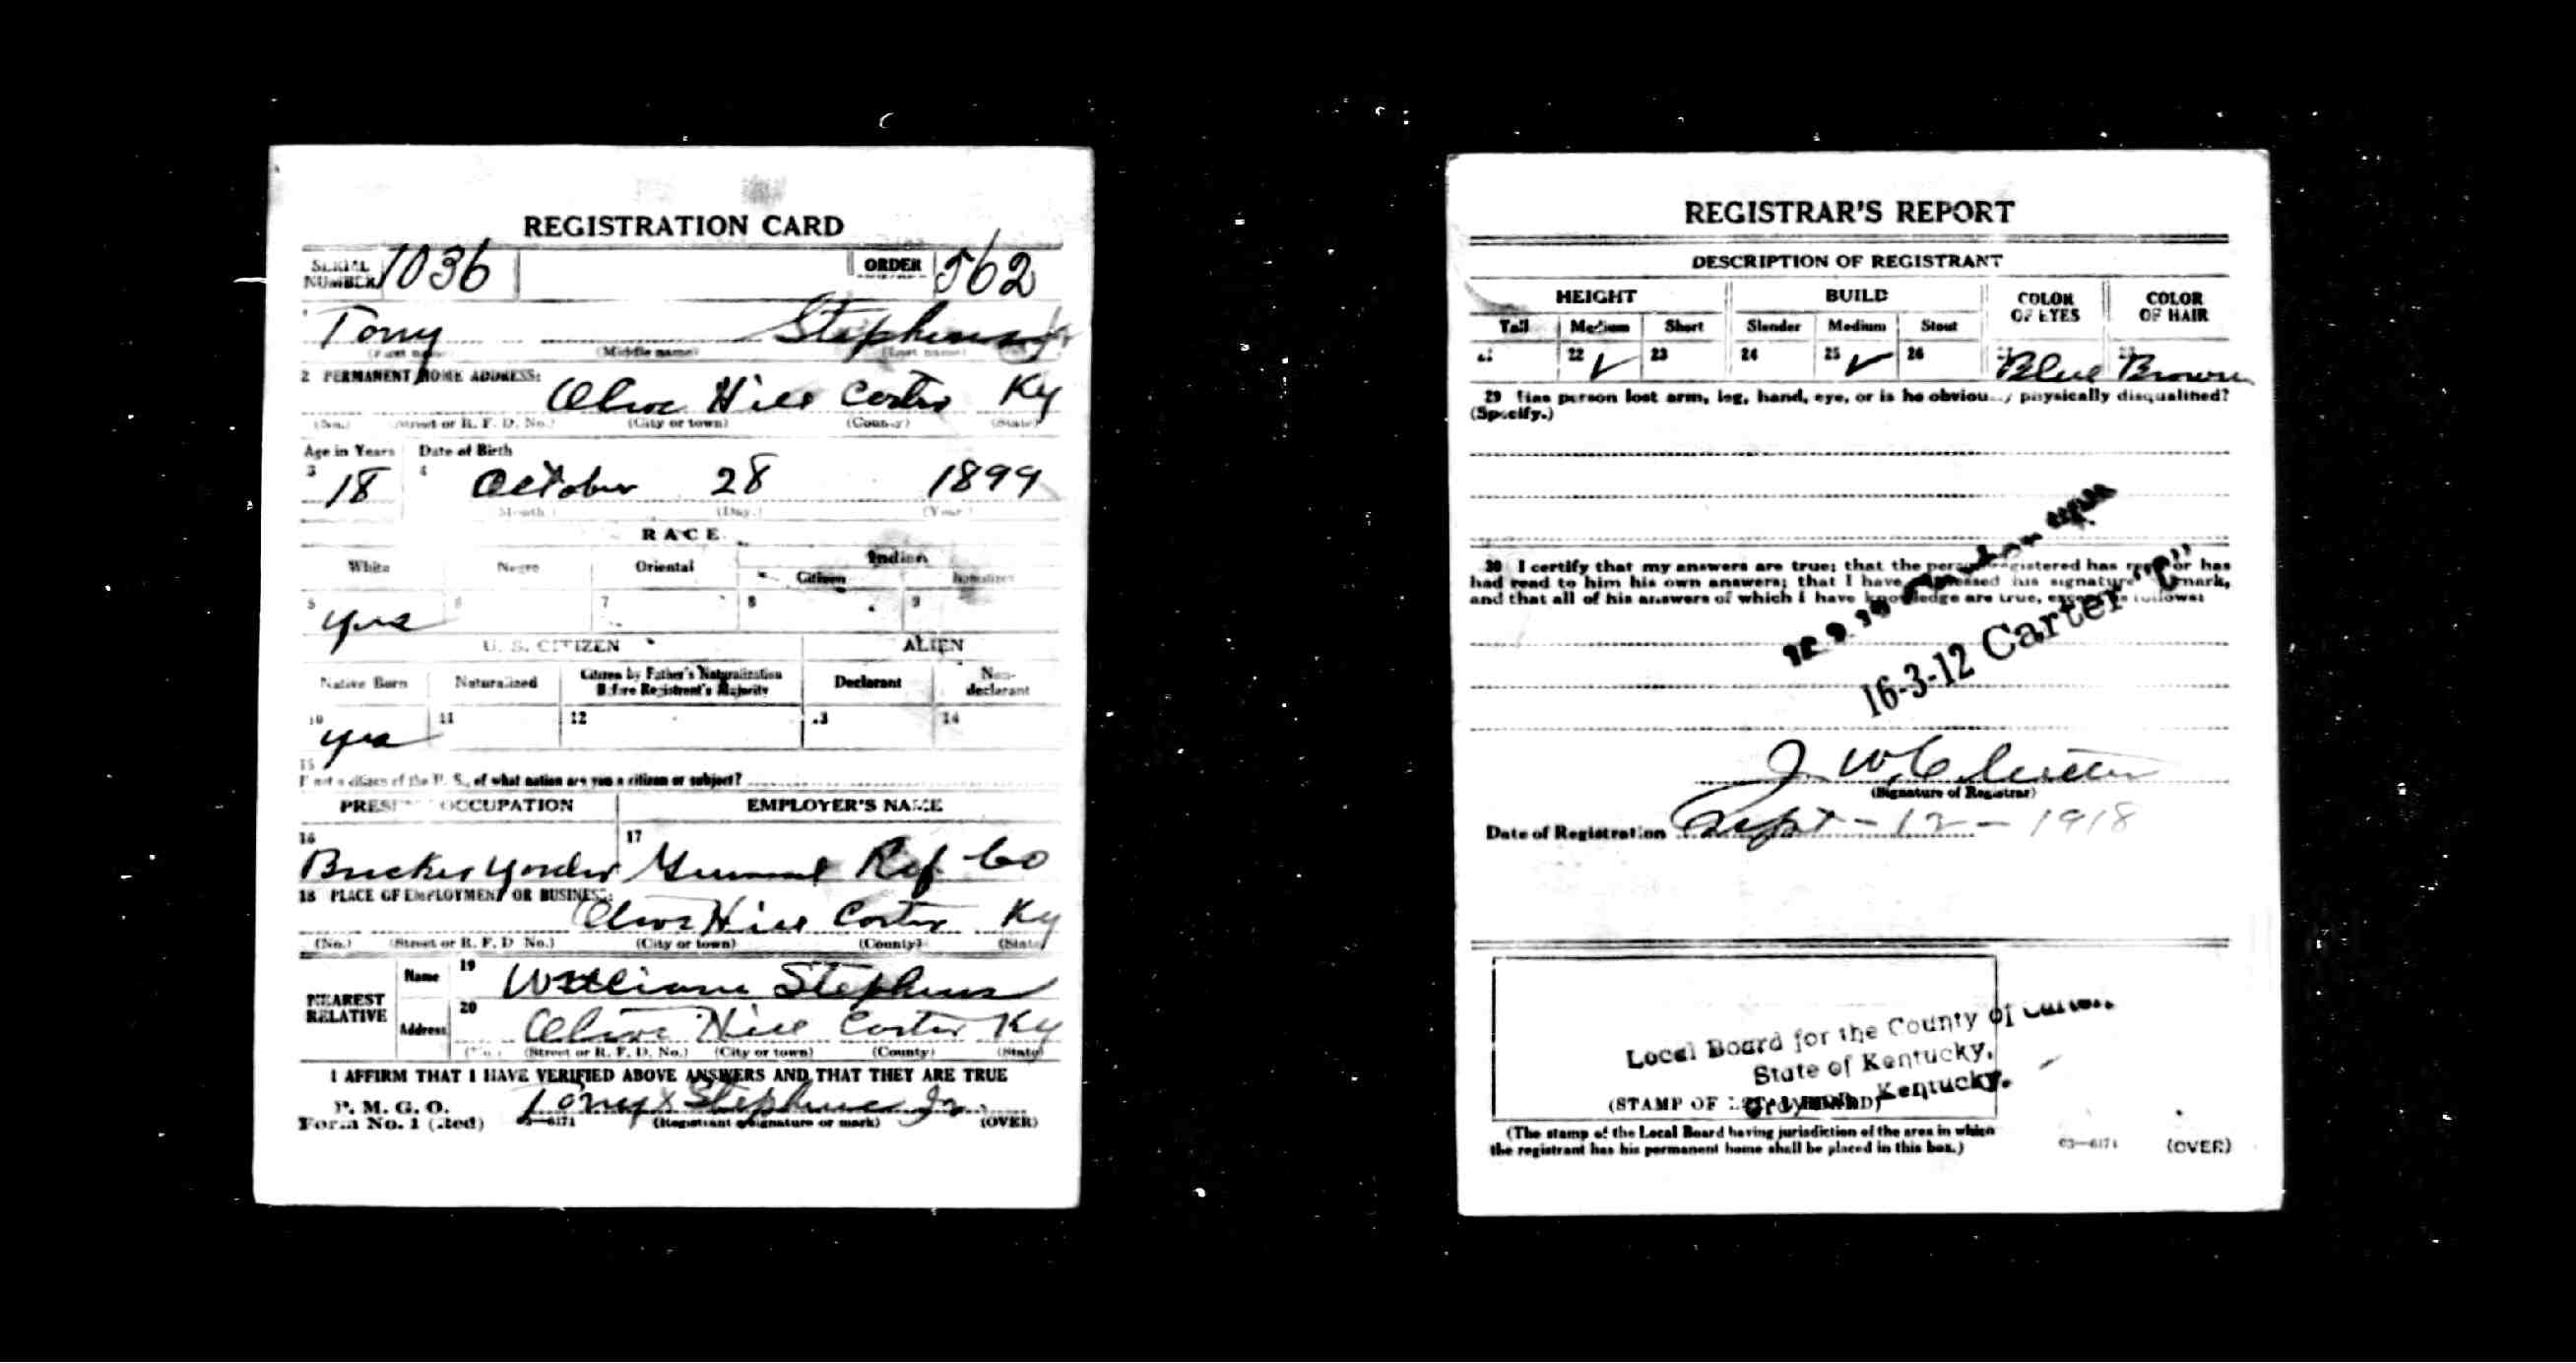 REGISTRATION CARD
SERIAL NUMBER 1036 ORDER 562
1 Tony Stephens Jr
(First name) (Middle name) (Last name)
2 PERMANENT HOME ADDRESS:
Olive Hill Carter Ky
(No.) (Street or R. F. D. No.) (City or town) (County) (State)
Age in Years Date of Birth
3 18 4 October 28 1899
(Month.) (Day.) (Year.)
RACE
White Negro Oriental Indian
Citizen Noncitizen
5 yes 6 7 8 9
U. S. CITIZEN ALIEN
Native Born Naturalized Citizen by Father's Naturalization Before Registrant's Majority Declarant Non-declarant
10 yes 11 12 13 14
15
If not a citizen of the U. S., of what nation are you a citizen or subject?
PRESENT OCCUPATION EMPLOYER'S NAME
16 17
Ref Co
18 PLACE OF EMPLOYMENT OR BUSINESS:
Olive Hill Carter Ky
(No.) (Street or R. F. D. No.) (City or town) (County) (State)
NEAREST RELATIVE
Name 19 William Stephens
Address 20 Olive Hill Carter Ky
(No.) (Street or R. F. D. No.) (City or town) (County) (State)
I AFFIRM THAT I HAVE VERIFIED ABOVE ANSWERS AND THAT THEY ARE TRUE
P. M. G. O.
Form No. 1 (Red) Tony X Stephens Jr.
03—6171 (Registrant's signature or mark) (OVER)
REGISTRAR'S REPORT
DESCRIPTION OF REGISTRANT
HEIGHT BUILD COLOR OF EYES COLOR OF HAIR
Tall Medium Short Slender Medium Stout
21 22 ✓ 23 24 25 ✓ 26 Blue Brown
29 Has person lost arm, leg, hand, eye, or is he obviously physically disqualified?
(Specify.)
30 I certify that my answers are true; that the person registered has read or has
had read to him his own answers; that I have witnessed his signature or mark,
and that all of his answers of which I have knowledge are true, except as follows:
16-3-12 Carter "C"
J W
(Signature of Registrar)
Date of Registration Sept - 12 - 1918
Local Board for the County of Carter,
State of Kentucky,
Kentucky.
(STAMP OF LOCAL BOARD)
(The stamp of the Local Board having jurisdiction of the area in which
the registrant has his permanent home shall be placed in this box.)
03—6171 (OVER)